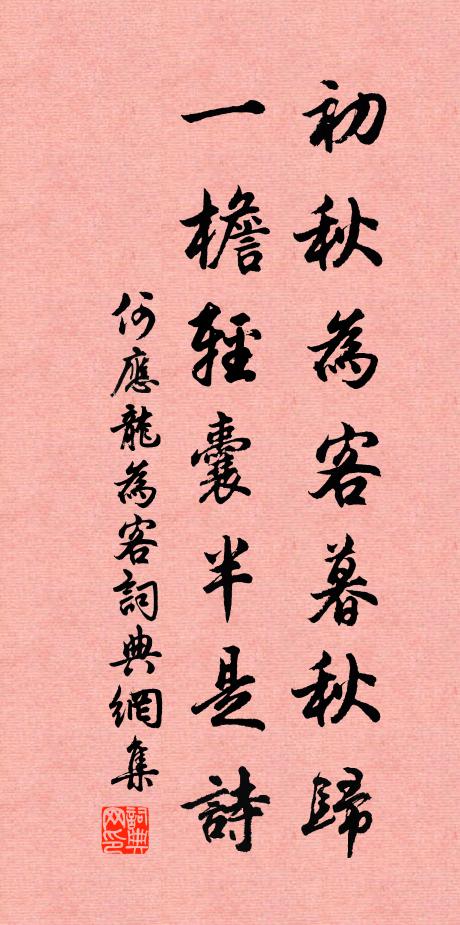 初秋為客暮秋歸
一檐輕囊半是詩
何應龍為客詞典網集
詞典网印